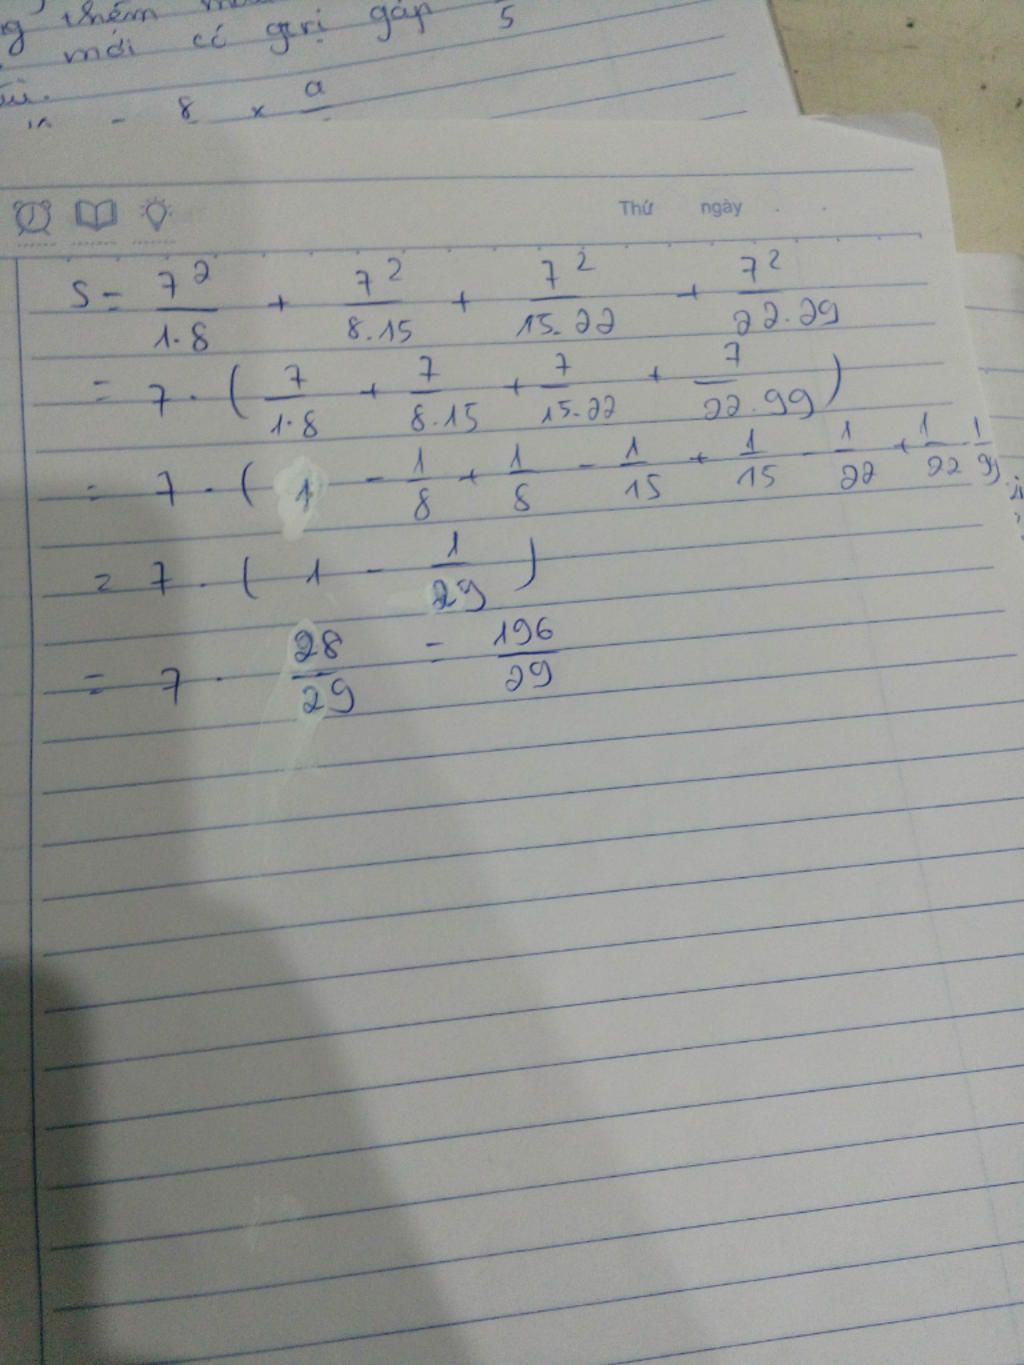 thêm
mới có giá trị gấp 5
- 8 × a
Thứ ngày
S = 7²/1.8 + 7²/8.15 + 7²/15.22 + 7²/22.29
= 7 . ( 7/1.8 + 7/8.15 + 7/15.22 + 7/22.99 )
= 7 . ( 1 - 1/8 + 1/8 - 1/15 + 1/15 - 1/22 + 1/22 - 1/99
= 7 . ( 1 - 1/29 )
= 7 . 28/29 = 196/29